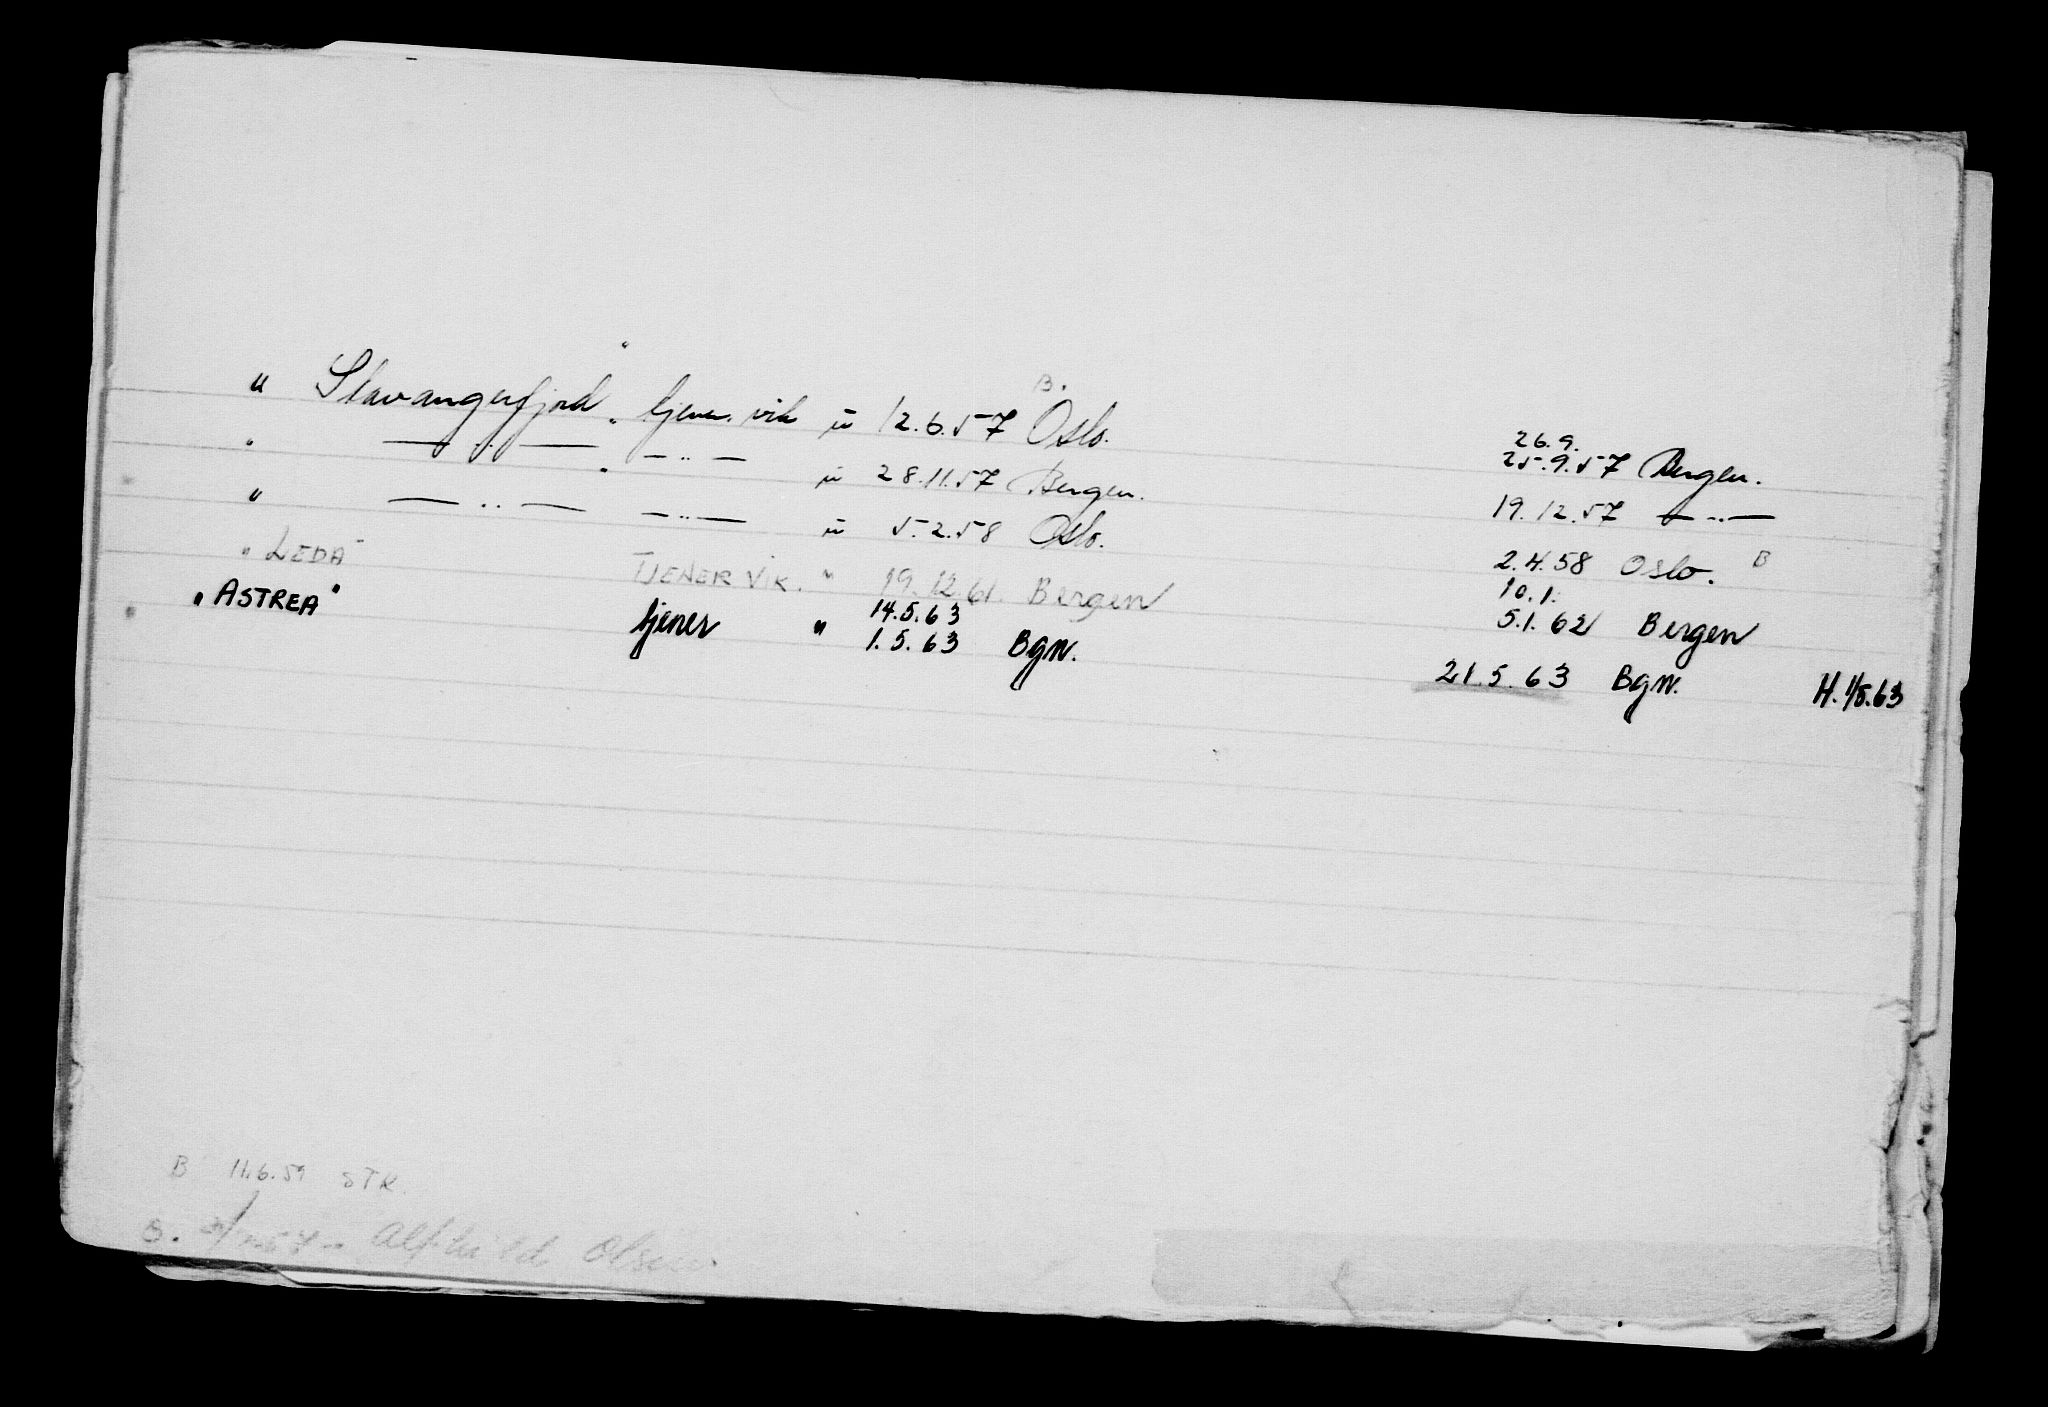 " Stavangerfjord" tjener. vik " 12.6.57 B. Oslo. 26.9. 25.9.57 Bergen.
" — " — " — " — " 28.11.57 Bergen. 19.12.57 — " —
" — " — — " — " 5.2.58 Oslo. 2.4.58 Oslo. B
"LEDA" TJENER VIK. " 19.12.61. Bergen 10.1. 5.1.62 Bergen
"ASTREA" tjener " 14.5.63 1.5.63 Bgn. 21.5.63 Bgn. H. 1/8.63
B 11.6.59 STR.
B. Alfhild Olsen.